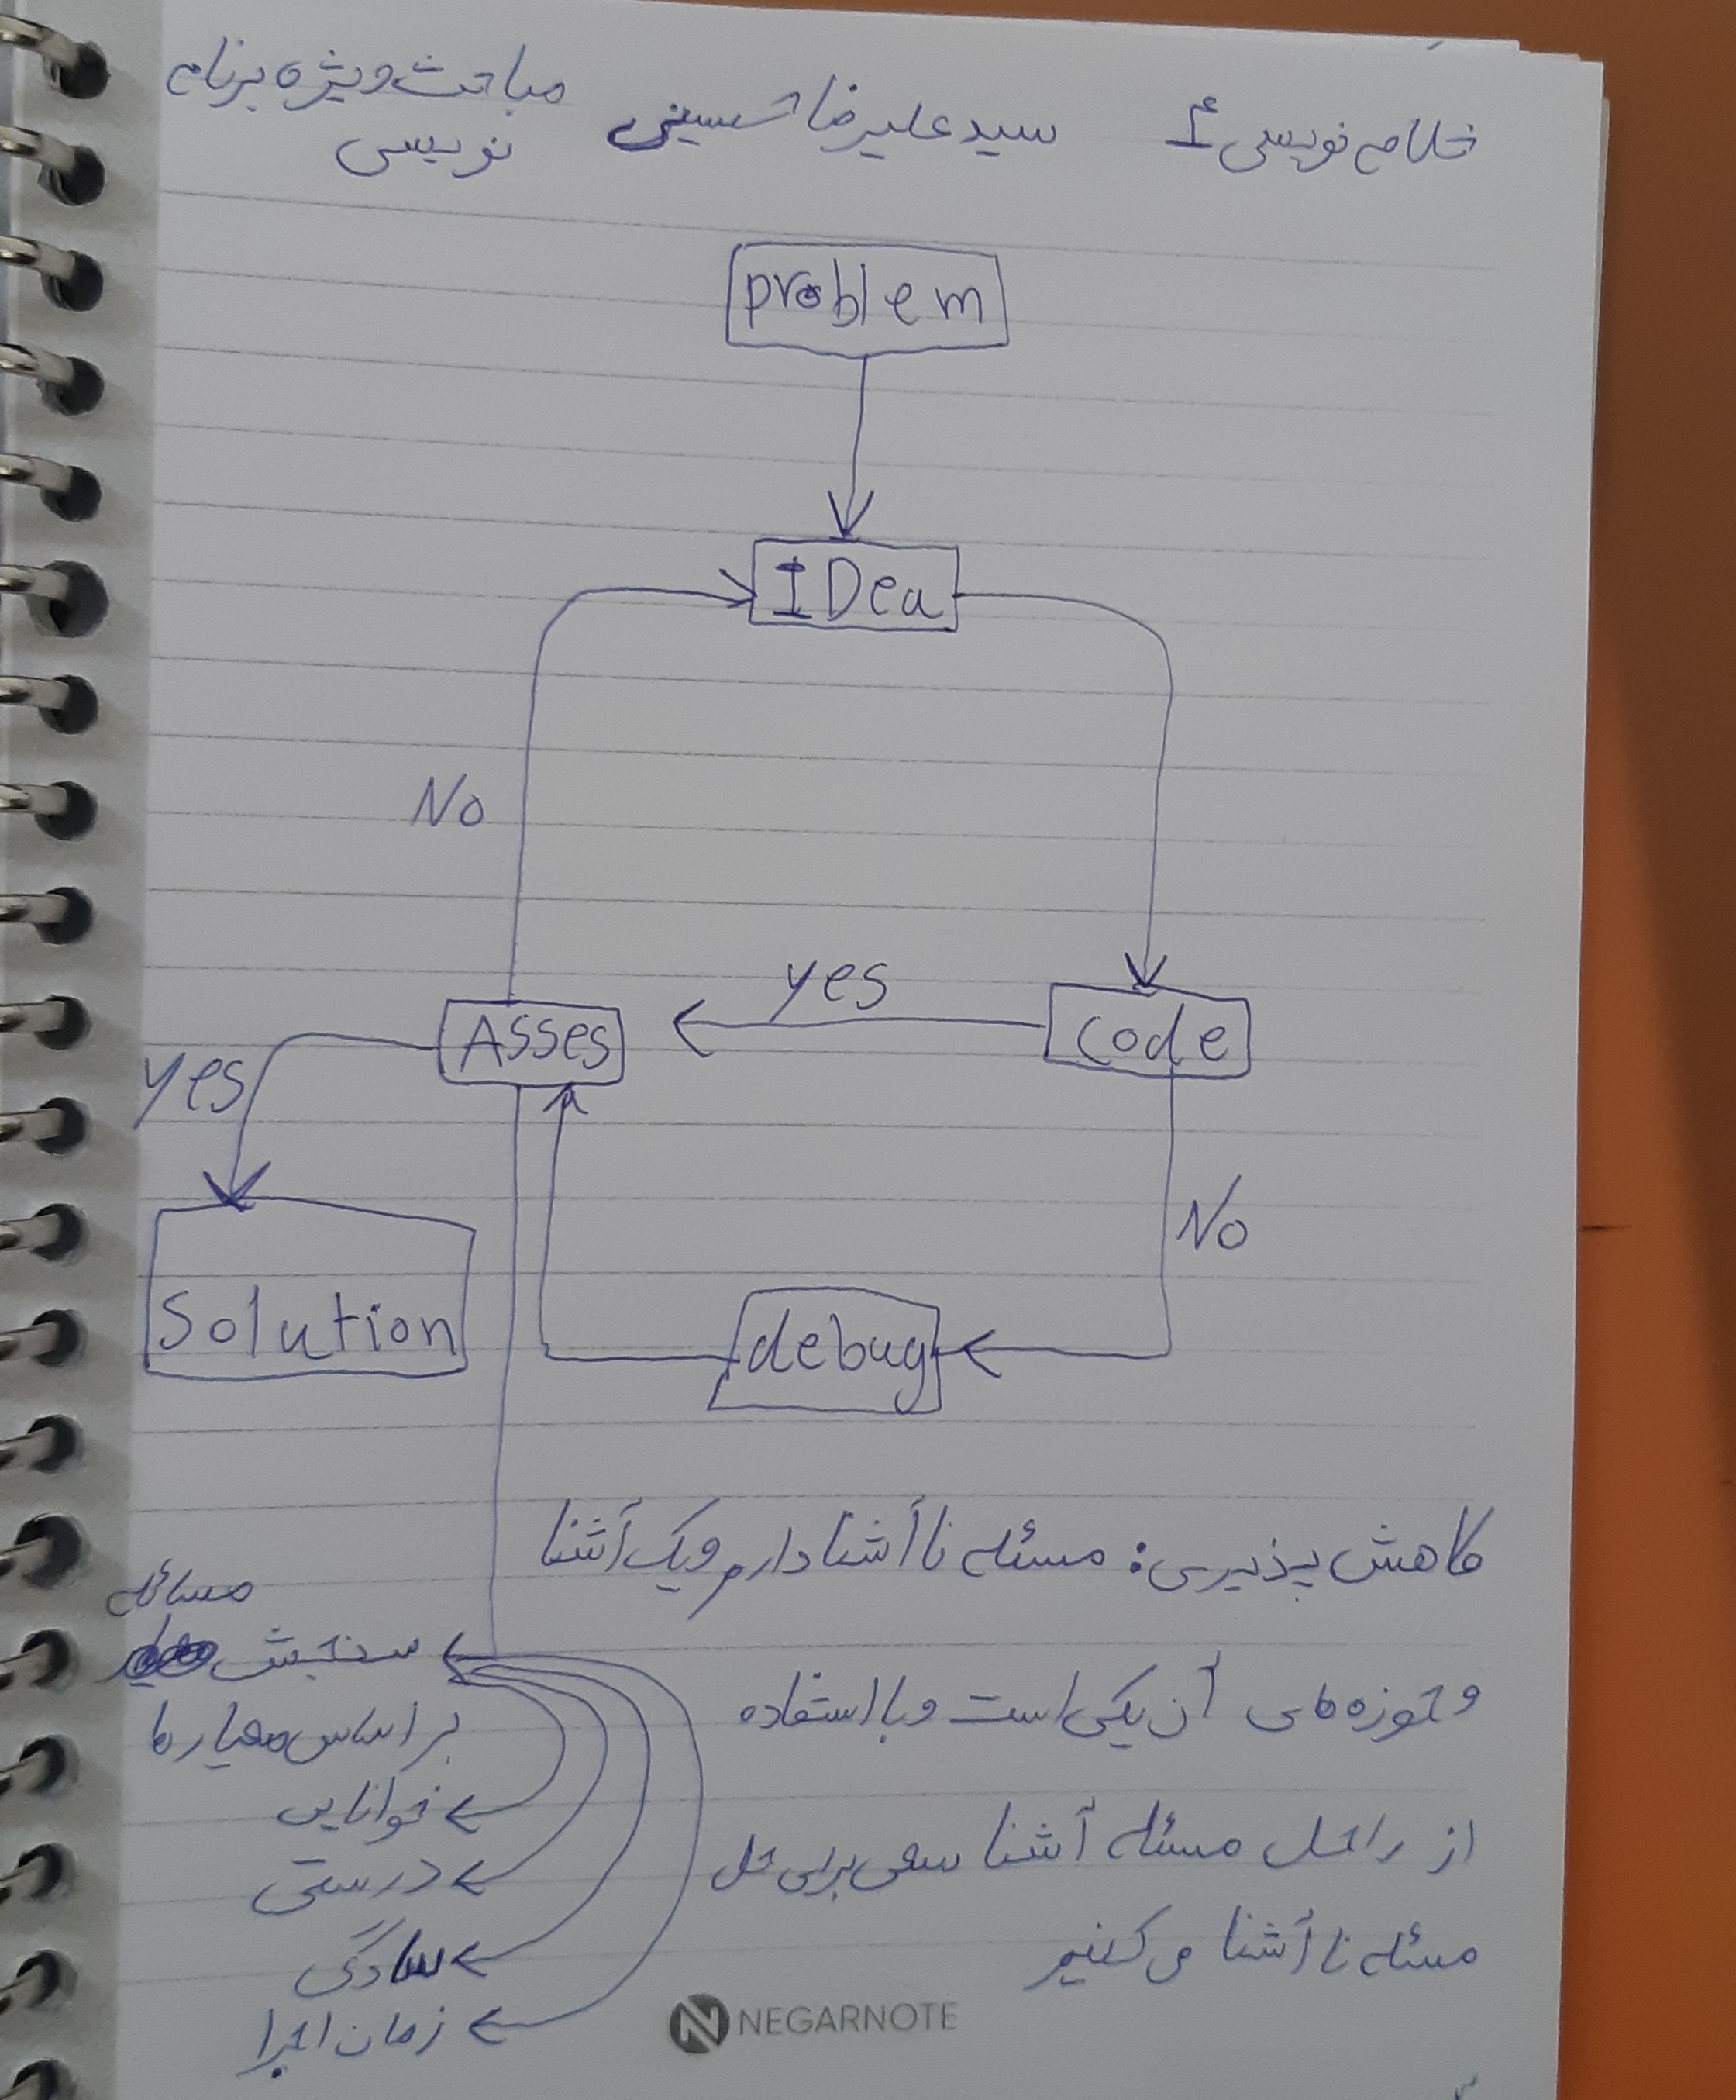 خلاصه نویسی 1 سید علیرضا حسینی مباحث ویژه برنامه
نویسی
problem
IDea
No
yes
Code
Asses
yes
No
Solution
debug
کاهش پذیری: مسئله ناآشنا دارم ویک آشنا
وحوزه های آن یکی است وبا استفاده
از راحل مسئله آشنا سعی برای حل
مسئله ناآشنا می کنیم
مسائله
سنجش
بر اساس معیارها
خوانایی
درستی
سادگی
زمان اجرا
NEGARNOTE